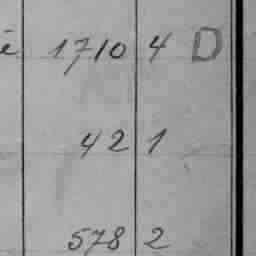 1710 4 D
42 1
578 2